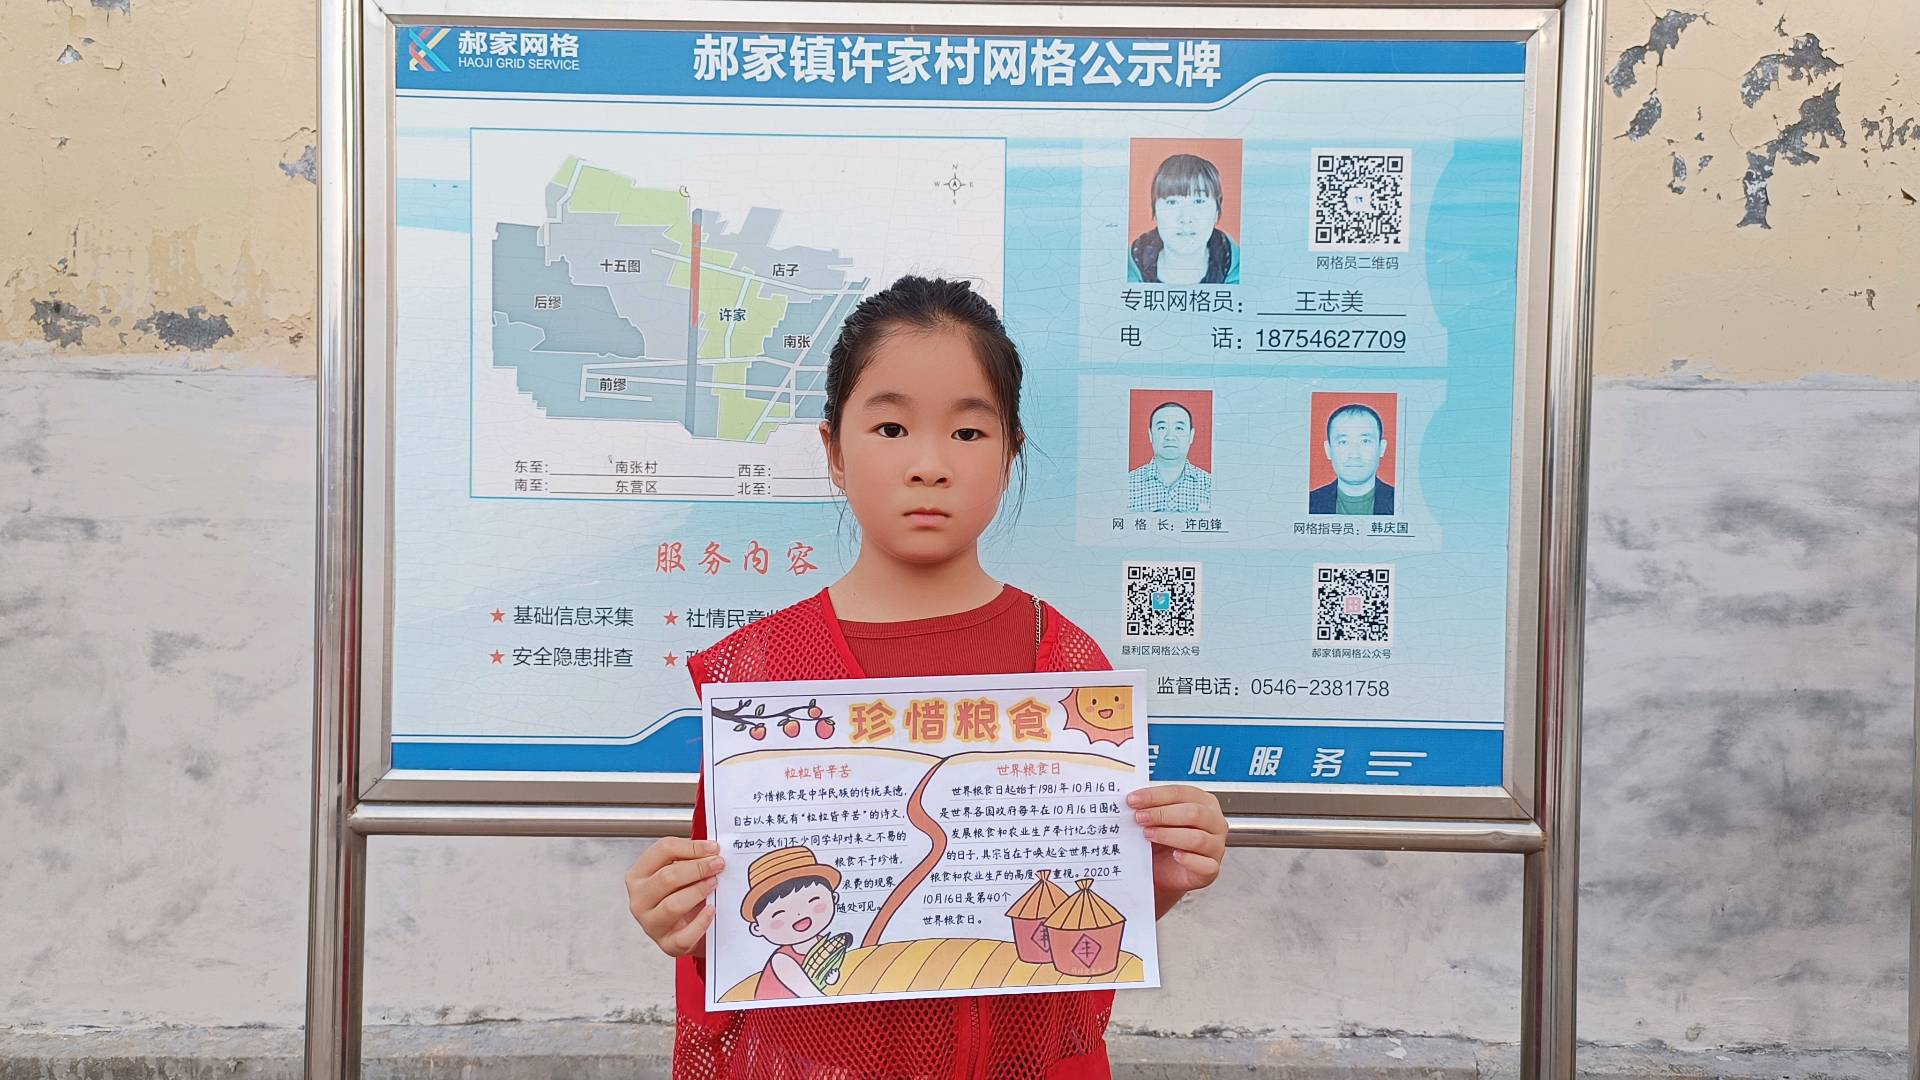 郝家网格
HAOJI GRID SERVICE
郝家镇许家村网格公示牌
N
W E
S
十五图
店子
后缪
许家
南张
前缪
东至: 南张村 西至:
南至: 东营区 北至:
服务内容
★ 基础信息采集 ★ 社情民意
★ 安全隐患排查 ★
网格员二维码
专职网格员: 王志美
电 话: 18754627709
网 格 长: 许向锋
网格指导员: 韩庆国
垦利区网格公众号
郝家镇网格公众号
监督电话: 0546-2381758
心 服 务
珍惜粮食
粒粒皆辛苦
珍惜粮食是中华民族的传统美德,
自古以来就有“粒粒皆辛苦”的诗文,
而如今我们不少同学却对来之不易的
粮食不予珍惜,
浪费的现象
随处可见。
世界粮食日
世界粮食日起始于1981年10月16日,
是世界各国政府每年在10月16日围绕
发展粮食和农业生产举行纪念活动
的日子,其宗旨在于唤起全世界对发展
粮食和农业生产的高度重视。2020年
10月16日是第40个
世界粮食日。
丰
丰